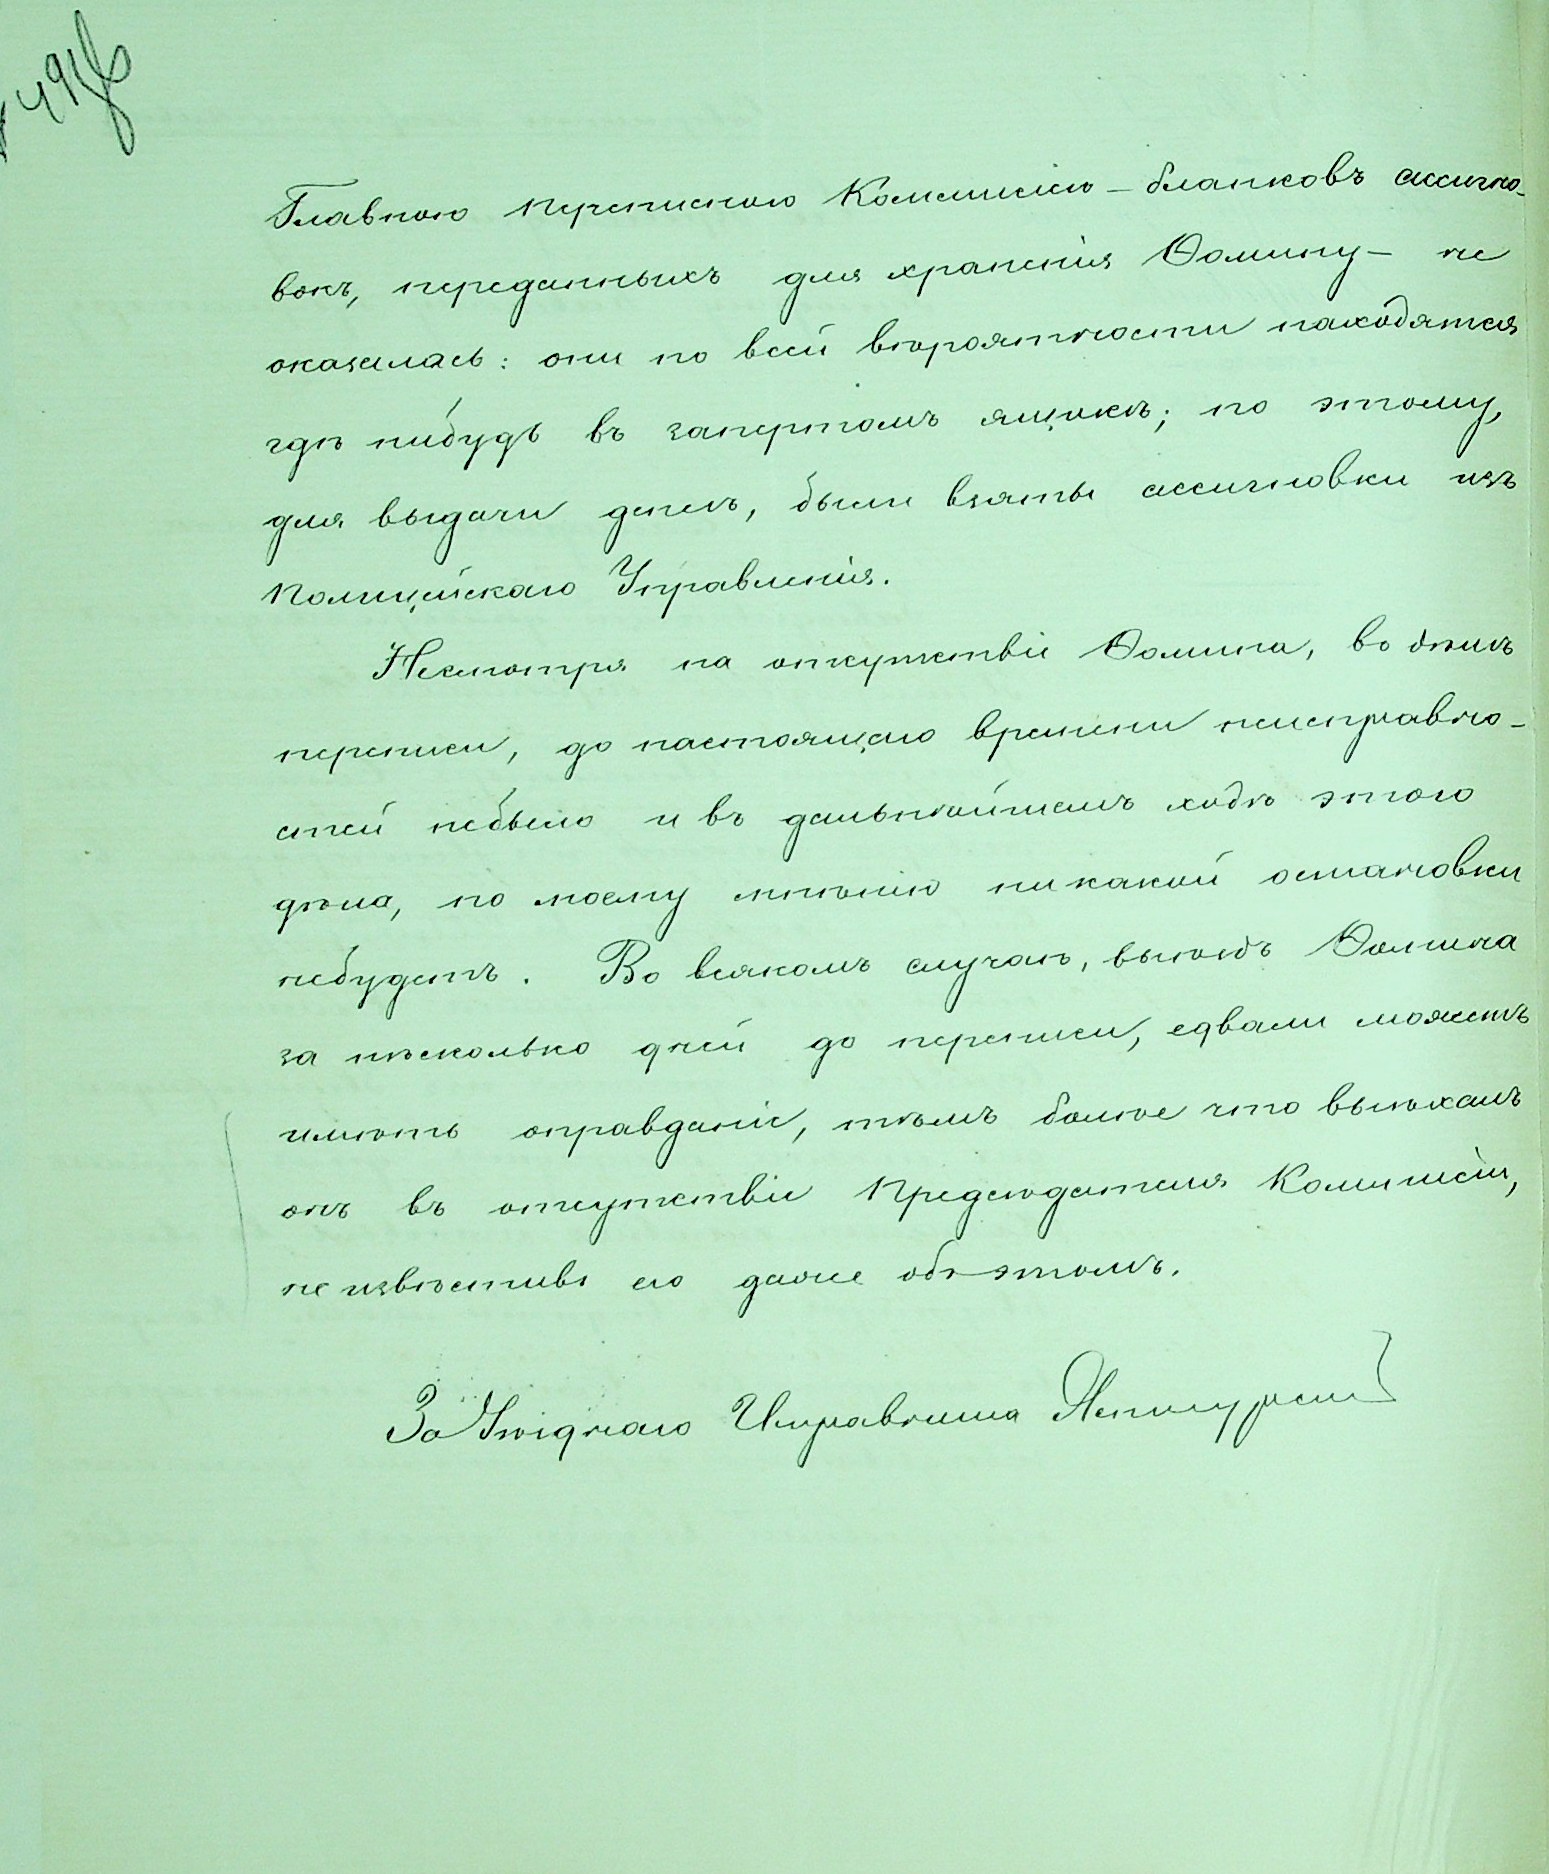 Главною переписною Коммисіею – бланковъ ассигно-
вокъ, переданныхъ для храненія Ѳомину – не
оказалась: они по всей вѣроятности находятся
гдѣ нибудь въ запертомъ ящикѣ; по этому,
для выдачи денегъ, были взяты ассигновки изъ
Полицейскаго Управленія.
Несмотря на отсутствіе Ѳомина, въ дѣлѣ
переписи, до настоящаго времени неисправно-
стей небыло и въ дальнѣйшемъ ходѣ этого
дѣла, по моему мнѣнію никакой остановки
небудетъ. Во всякомъ случаѣ, выѣздъ Ѳомина
за нѣсколько дней до переписи, едвали можетъ
имѣть оправданіе, тѣмъ болѣе что выѣхалъ
онъ въ отсутствіи Предсѣдателя Коммисіи,
не извѣстивъ его даже объ этомъ.
За Уѣзднаго Исправника